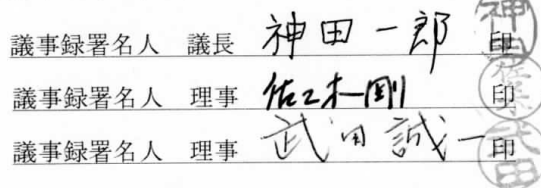 議事録署名人 議長 神田一郎 印
議事録署名人 理事 佐々木剛 印
議事録署名人 理事 武田誠一 印
神田
佐々木
武田